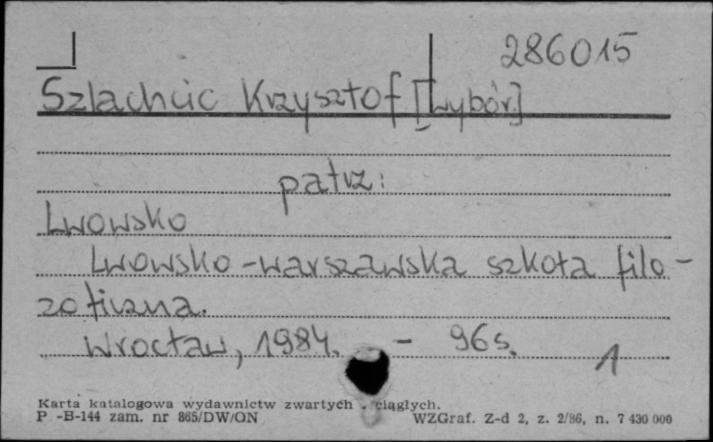 286015
Szlachcic Krzysztof [Wybór]
patrz:
Lwowsko
Lwowsko-warszawska szkoła filo-
zoficzna.
Wrocław, 1984. - 96 s.
1
Karta katalogowa wydawnictw zwartych . ciągłych.
P -B-144 zam. nr 865/DW/ON WZGraf. Z-d 2, z. 2/86, n. 7 430 000